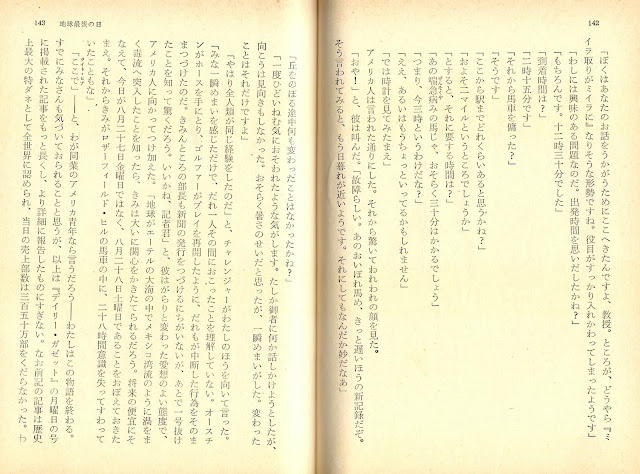 142
「ぼくはあなたのお話をうかがうためにここへきたんですよ、教授。ところが、どうやら『ミ
イラ取りがミイラに』なりそうな形勢ですね。役目がすっかり入れかわってしまったようです」
「わしには興味のある問題なのだ。出発時間を思いだしたかね？」
「もちろんです。十二時三十分でした」
「到着時間は？」
「二時十五分です」
「それから馬車を傭った？」
「そうです」
「ここから駅までどれくらいあると思うかね？」
「およそ二マイルというところでしょうか」
「とすると、それに要する時間は？」
「あの喘息病みの馬じゃ、おそらく三十分はかかるでしょう」
「つまり、今三時というわけだな？」
「ええ、あるいはもうちょっといってるかもしれません」
「では時計を見てみたまえ」
アメリカ人は言われた通りにした。それから驚いてわれわれの顔を見た。
「おや！」と、彼は叫んだ。「故障らしい。あのおいぼれ馬め、きっと遅いほうの新記録だぞ。
そう言われてみると、もう日暮れが近いようです。それにしてもなんだか妙だなあ」
143 地球最後の日
「丘をのぼる途中何も変わったことはなかったかね？」
「一度ひどいねむ気におそわれたような気がします。たしか御者に何か話しかけようとしたが、
向こうは見向きもしなかった。おそらく暑さのせいだと思うが、一瞬めまいがした。変わった
ことはそれだけですよ」
「やはり全人類が同じ経験をしたのだ」と、チャレンジャーがわたしのほうを向いて言った。
「みな一瞬めまいを感じただけで、だれ一人その間におこったことを理解していない。オースチ
ンがホースを手にとり、ゴルファーがプレイを再開したように、だれもが中断した行為をそのま
まつづけたのだ。きみんところの部長も新聞の発行をつづけるにちがいないが、あとで一号抜け
たことを知って驚くだろう。いいかね、記者君」と、彼はがらりと変わった愛想のよい態度で、
アメリカ人に向かってつけ加えた。「地球がエーテルの大海の中でメキシコ湾流のように渦をま
く毒流へ突入したことを知ったら、きみは大いに関心をかきたてられるだろう。将来の便宜にそ
なえて、今日が八月二十七日金曜日ではなく、八月二十八日土曜日であることをおぼえておきた
まえ。それからきみがロザーフィールド・ヒルの馬車の中に、二十八時間意識を失ってすわって
いたこともな」
「ここで」――と、わが同業のアメリカ青年なら言うだろう――わたしはこの物語を終わる。
すでにみなさんも気づいておられることと思うが、以上は『デイリー・ガゼット』の月曜日の号
に掲載された記事をもっと長く、より詳細に報告したものにすぎない。なお前記の記事は歴史
上最大の特ダネとして全世界に認められ、当日の売上部数は三百五十万部をくだらなかった。わ